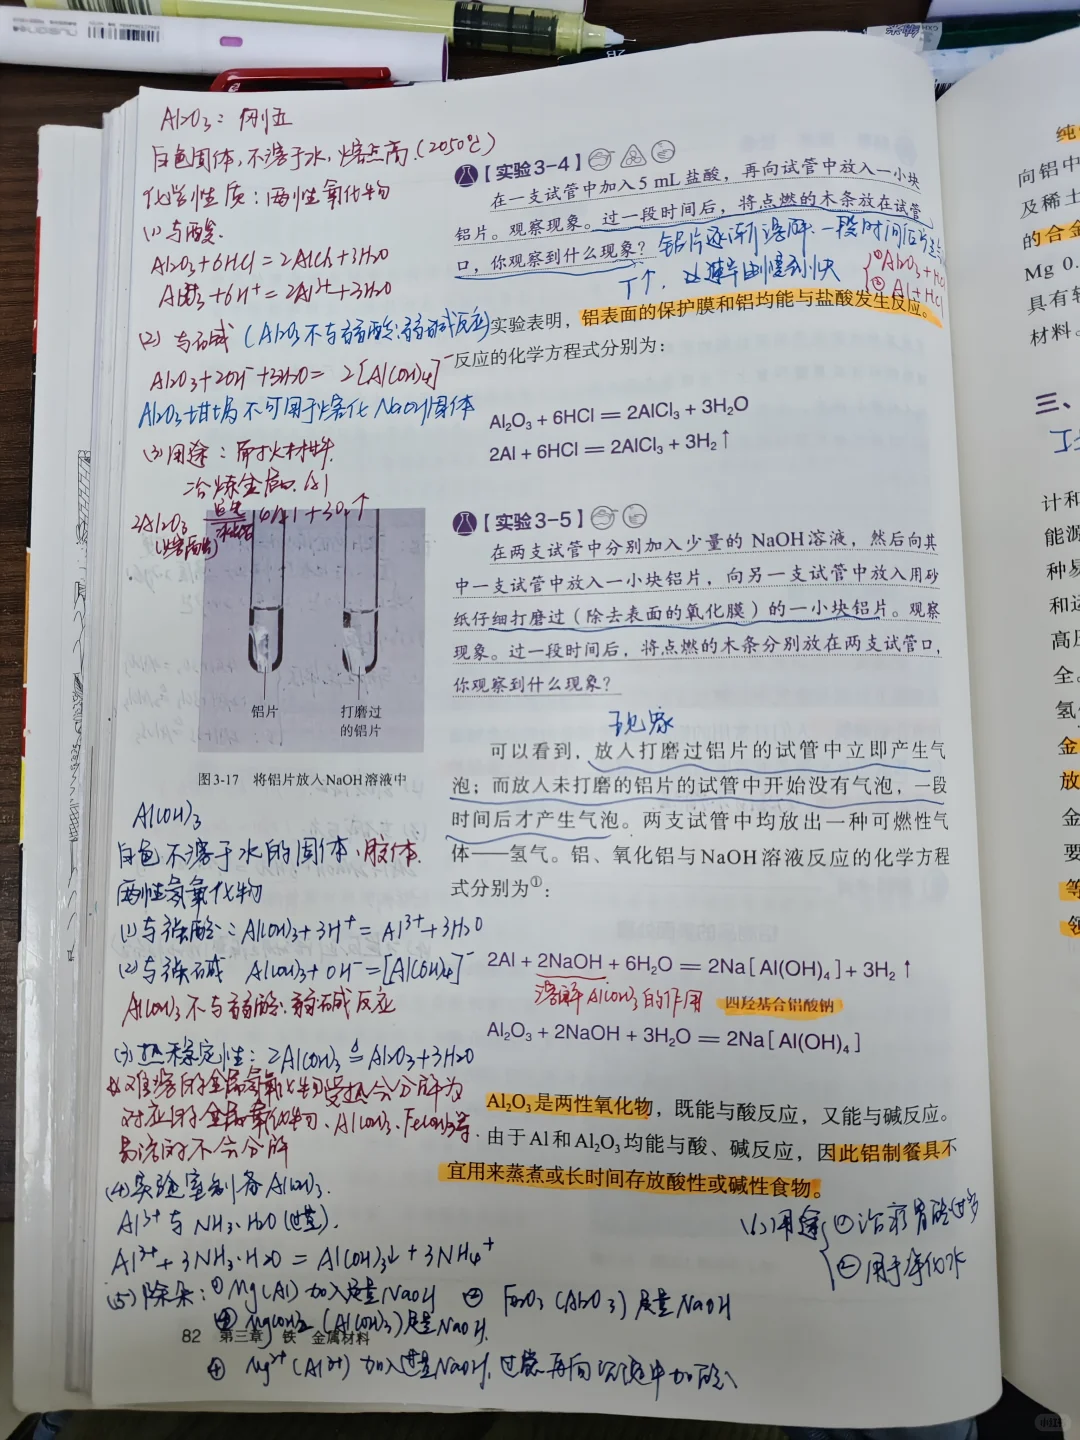 Al₂O₃: 刚玉
白色固体,不溶于水,熔点高.(2050℃)
化学性质:两性氧化物
(1)与酸.
Al₂O₃+6HCl=2AlCl₃+3H₂O
Al₂O₃+6H⁺=2Al³⁺+3H₂O
(2)与碱 (Al₂O₃不与弱酸.弱碱反应)
Al₂O₃+2OH⁻+3H₂O=2[Al(OH)₄]⁻
Al₂O₃坩埚不可用于熔化NaOH固体
(3)用途:耐火材料.
冶炼金属Al
2Al₂O₃ 通电 4Al+3O₂↑
(熔融) 冰晶石
铝片
打磨过的铝片
图3-17 将铝片放入NaOH溶液中
Al(OH)₃
白色不溶于水的固体.胶体.
两性氢氧化物
(1)与强酸:Al(OH)₃+3H⁺=Al³⁺+3H₂O
(2)与强碱 Al(OH)₃+OH⁻=[Al(OH)₄]⁻
Al(OH)₃不与弱酸.弱碱反应
(3)热稳定性:2Al(OH)₃≜Al₂O₃+3H₂O
难溶的金属氢氧化物受热会分解为
对应的金属氧化物.Al(OH)₃.Fe(OH)₃等.
易溶的不会分解
(4)实验室制备Al(OH)₃.
Al³⁺与NH₃·H₂O(过量).
Al³⁺+3NH₃·H₂O=Al(OH)₃↓+3NH₄⁺
(5)除杂:①Mg(Al)加入足量NaOH ②Fe₂O₃(Al₂O₃)足量NaOH
Mg(OH)₂(Al(OH)₃)足量NaOH.
82 第三章 铁 金属材料
④ Mg²⁺(Al³⁺)加入过量NaOH,过滤再向沉淀中加酸
【实验3-4】
在一支试管中加入5 mL盐酸,再向试管中放入一小块
铝片。观察现象。过一段时间后,将点燃的木条放在试管
口,你观察到什么现象?
铝片逐渐溶解.一段时间后
T↑,速率由慢到快
①Al₂O₃+HCl
②Al+HCl
实验表明,铝表面的保护膜和铝均能与盐酸发生反应。
反应的化学方程式分别为:
Al₂O₃ + 6HCl = 2AlCl₃ + 3H₂O
2Al + 6HCl = 2AlCl₃ + 3H₂↑
【实验3-5】
在两支试管中分别加入少量的NaOH溶液,然后向其
中一支试管中放入一小块铝片,向另一支试管中放入用砂
纸仔细打磨过(除去表面的氧化膜)的一小块铝片。观察
现象。过一段时间后,将点燃的木条分别放在两支试管口,
你观察到什么现象?
现象
可以看到,放入打磨过铝片的试管中立即产生气
泡;而放入未打磨的铝片的试管中开始没有气泡,一段
时间后才产生气泡。两支试管中均放出一种可燃性气
体——氢气。铝、氧化铝与NaOH溶液反应的化学方程
式分别为①:
2Al + 2NaOH + 6H₂O = 2Na[Al(OH)₄] + 3H₂↑
溶解Al(OH)₃的作用 四羟基合铝酸钠
Al₂O₃ + 2NaOH + 3H₂O = 2Na[Al(OH)₄]
Al₂O₃是两性氧化物,既能与酸反应,又能与碱反应。
由于Al和Al₂O₃均能与酸、碱反应,因此铝制餐具不
宜用来蒸煮或长时间存放酸性或碱性食物。
(6)用途 ①治疗胃酸过多
②用于净化水
纯
向铝中
及稀土
的合金
Mg 0.
具有轻
材料。
三、
计和
能源
种易
和运
高压
全。
氢
金
放
金
要
等
领